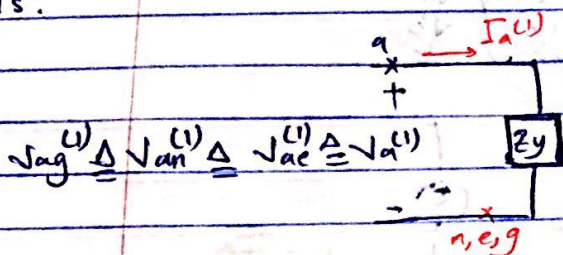 s.
a Ia(1)
+
Vag(1) ≜ Van(1) ≜ Vae(1) ≜ Va(1) Zy
-
n,e,g